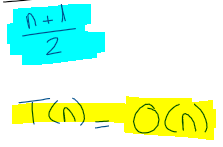 n+1
2
T(n) = O(n)